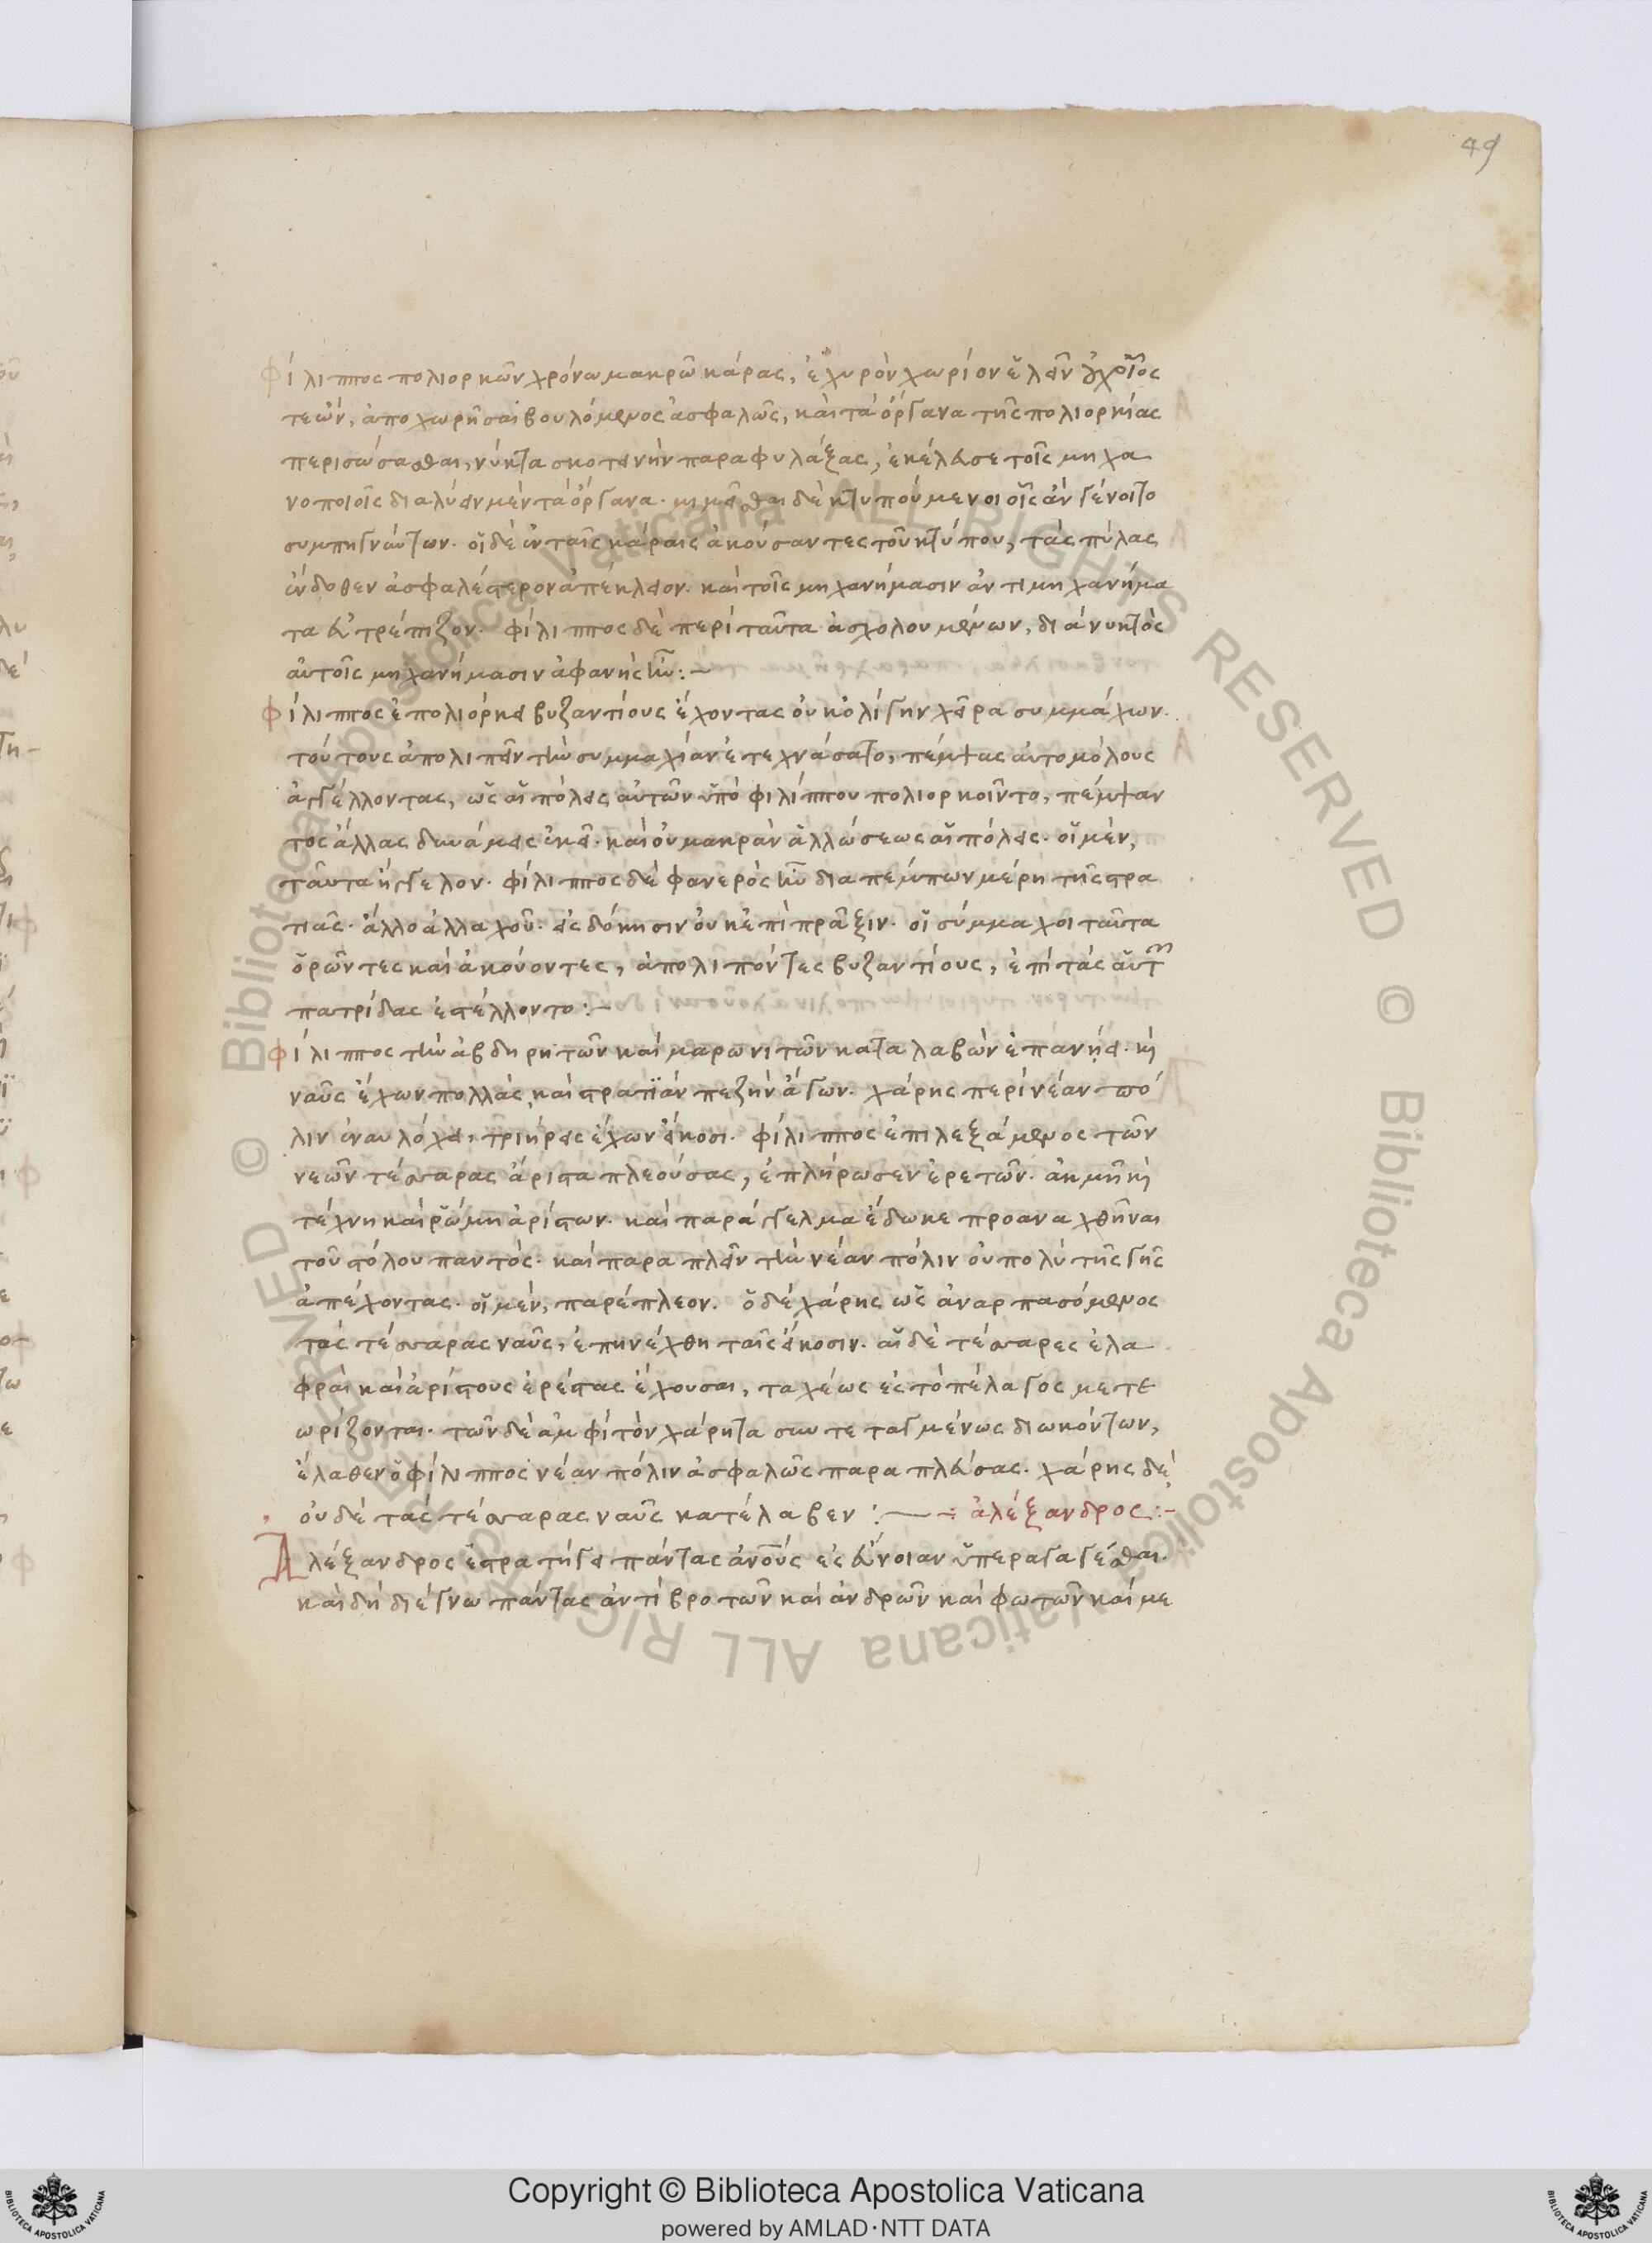 49
Φίλιππος πολιορκῶν χρόνω μακρῶ κάρας, ἐχυρὸν χωρίον ἑλεῖν οὐχ οἷός
τε ὤν, ἀποχωρῆσαι βουλόμενος ἀσφαλῶς, καὶ τὰ ὄργανα τῆς πολιορκίας
περισώσασθαι, νύκτα σκοτεινὴν παραφυλάξας, ἐκέλευσε τοῖς μηχα
νοποιοῖς διαλύειν μὲν τὰ ὄργανα. μιμεῖσθαι δὲ κτυπούμενοι οἷς ἂν γένοιτο
συμπηγνύντων. οἱ δὲ ἐν ταῖς κάραις ἀκούσαντες τοῦ κτύπου, τὰς πύλας
ἔνδοθεν ἀσφαλέστερον ἀπέκλειον. καὶ τοῖς μηχανήμασιν ἀντιμηχανήμα
τα εὐτρέπιζον. φίλιππος δὲ περὶ ταῦτα ἀσχολουμένων, διὰ νυκτὸς
αὐτοῖς μηχανήμασιν ἀφανὴς ἦν:-
Φίλιππος ἐπολιόρκει βυζαντίους ἔχοντας οὐκ ὀλίγην χεῖρα συμμάχων.
τούτους ἀπολιπεῖν τὴν συμμαχίαν ἐτεχνάσατο, πέμψας αὐτομόλους
ἀγγέλλοντας, ὡς αἱ πόλεις αὐτῶν ὑπὸ φιλίππου πολιορκοῖντο, πέμψαν
τος ἄλλας δυνάμεις ἐκεῖ. καὶ οὐ μακρὰν ἁλώσεως αἱ πόλεις. οἱ μὲν,
ταῦτα ἤγγελον. φίλιππος δὲ φανερὸς ἦν διαπέμπων μέρη τῆς στρα
τιᾶς. ἄλλο ἀλλαχοῦ. εἰς δόκησιν οὐκ ἐπὶ πρᾶξιν. οἱ σύμμαχοι ταῦτα
ὁρῶντες καὶ ἀκούοντες, ἀπολιπόντες βυζαντίους, ἐπὶ τὰς αὑτῶν
πατρίδας ἐστέλλοντο:-
Φίλιππος τὴν ἀβδηρητῶν καὶ μαρωνιτῶν καταλαβὼν ἐπανῄει. καὶ
ναῦς ἔχων πολλὰς, καὶ στρατϊὰν πεζὴν ἄγων. χάρης περὶ νέαν πό
λιν ἐναυλόχει, τριήρεις ἔχων εἴκοσι. φίλιππος ἐπιλεξάμενος τῶν
νεῶν τέσσαρας ἄριστα πλεούσας, ἐπλήρωσεν ἐρετῶν. ἀκμῆ καὶ
τέχνη καὶ ῥώμη ἀρίστων. καὶ παράγγελμα ἔδωκε προαναχθῆναι
τοῦ στόλου παντός. καὶ παραπλεῖν τὴν νέαν πόλιν οὐ πολὺ τῆς γῆς
ἀπέχοντας. οἱ μὲν, παρέπλεον. ὁ δὲ χάρης ὡς ἀναρπασόμενος
τὰς τέσσαρας ναῦς, ἐπηνέχθη ταῖς εἴκοσιν. αἱ δὲ τέσσαρες ἐλα
φραὶ καὶ ἀρίστους ἐρέτας ἔχουσαι, ταχέως εἰς τὸ πέλαγος μετε
ωρίζονται. τῶν δὲ ἀμφὶ τὸν χάρητα συντεταγμένως διωκόντων,
ἔλαθεν ὁ φίλιππος νέαν πόλιν ἀσφαλῶς παραπλεύσας. χάρης δὲ
οὐδὲ τὰς τέσσαρας ναῦς κατέλαβεν :— ἀλέξανδρος:-
Ἀλέξανδρος ἐστρατήγει πάντας ἀνους εἰς εὔνοιαν ὑπεραγαγέσθαι.
καὶ δὴ διέγνω πάντας ἀντὶ βροτῶν καὶ ἀνδρῶν καὶ φωτῶν καὶ με
Copyright © Biblioteca Apostolica Vaticana
powered by AMLAD·NTT DATA
© Biblioteca Apostolica Vaticana ALL RIGHTS RESERVED © Biblioteca Apostolica Vaticana ALL RIGHTS RESERVED